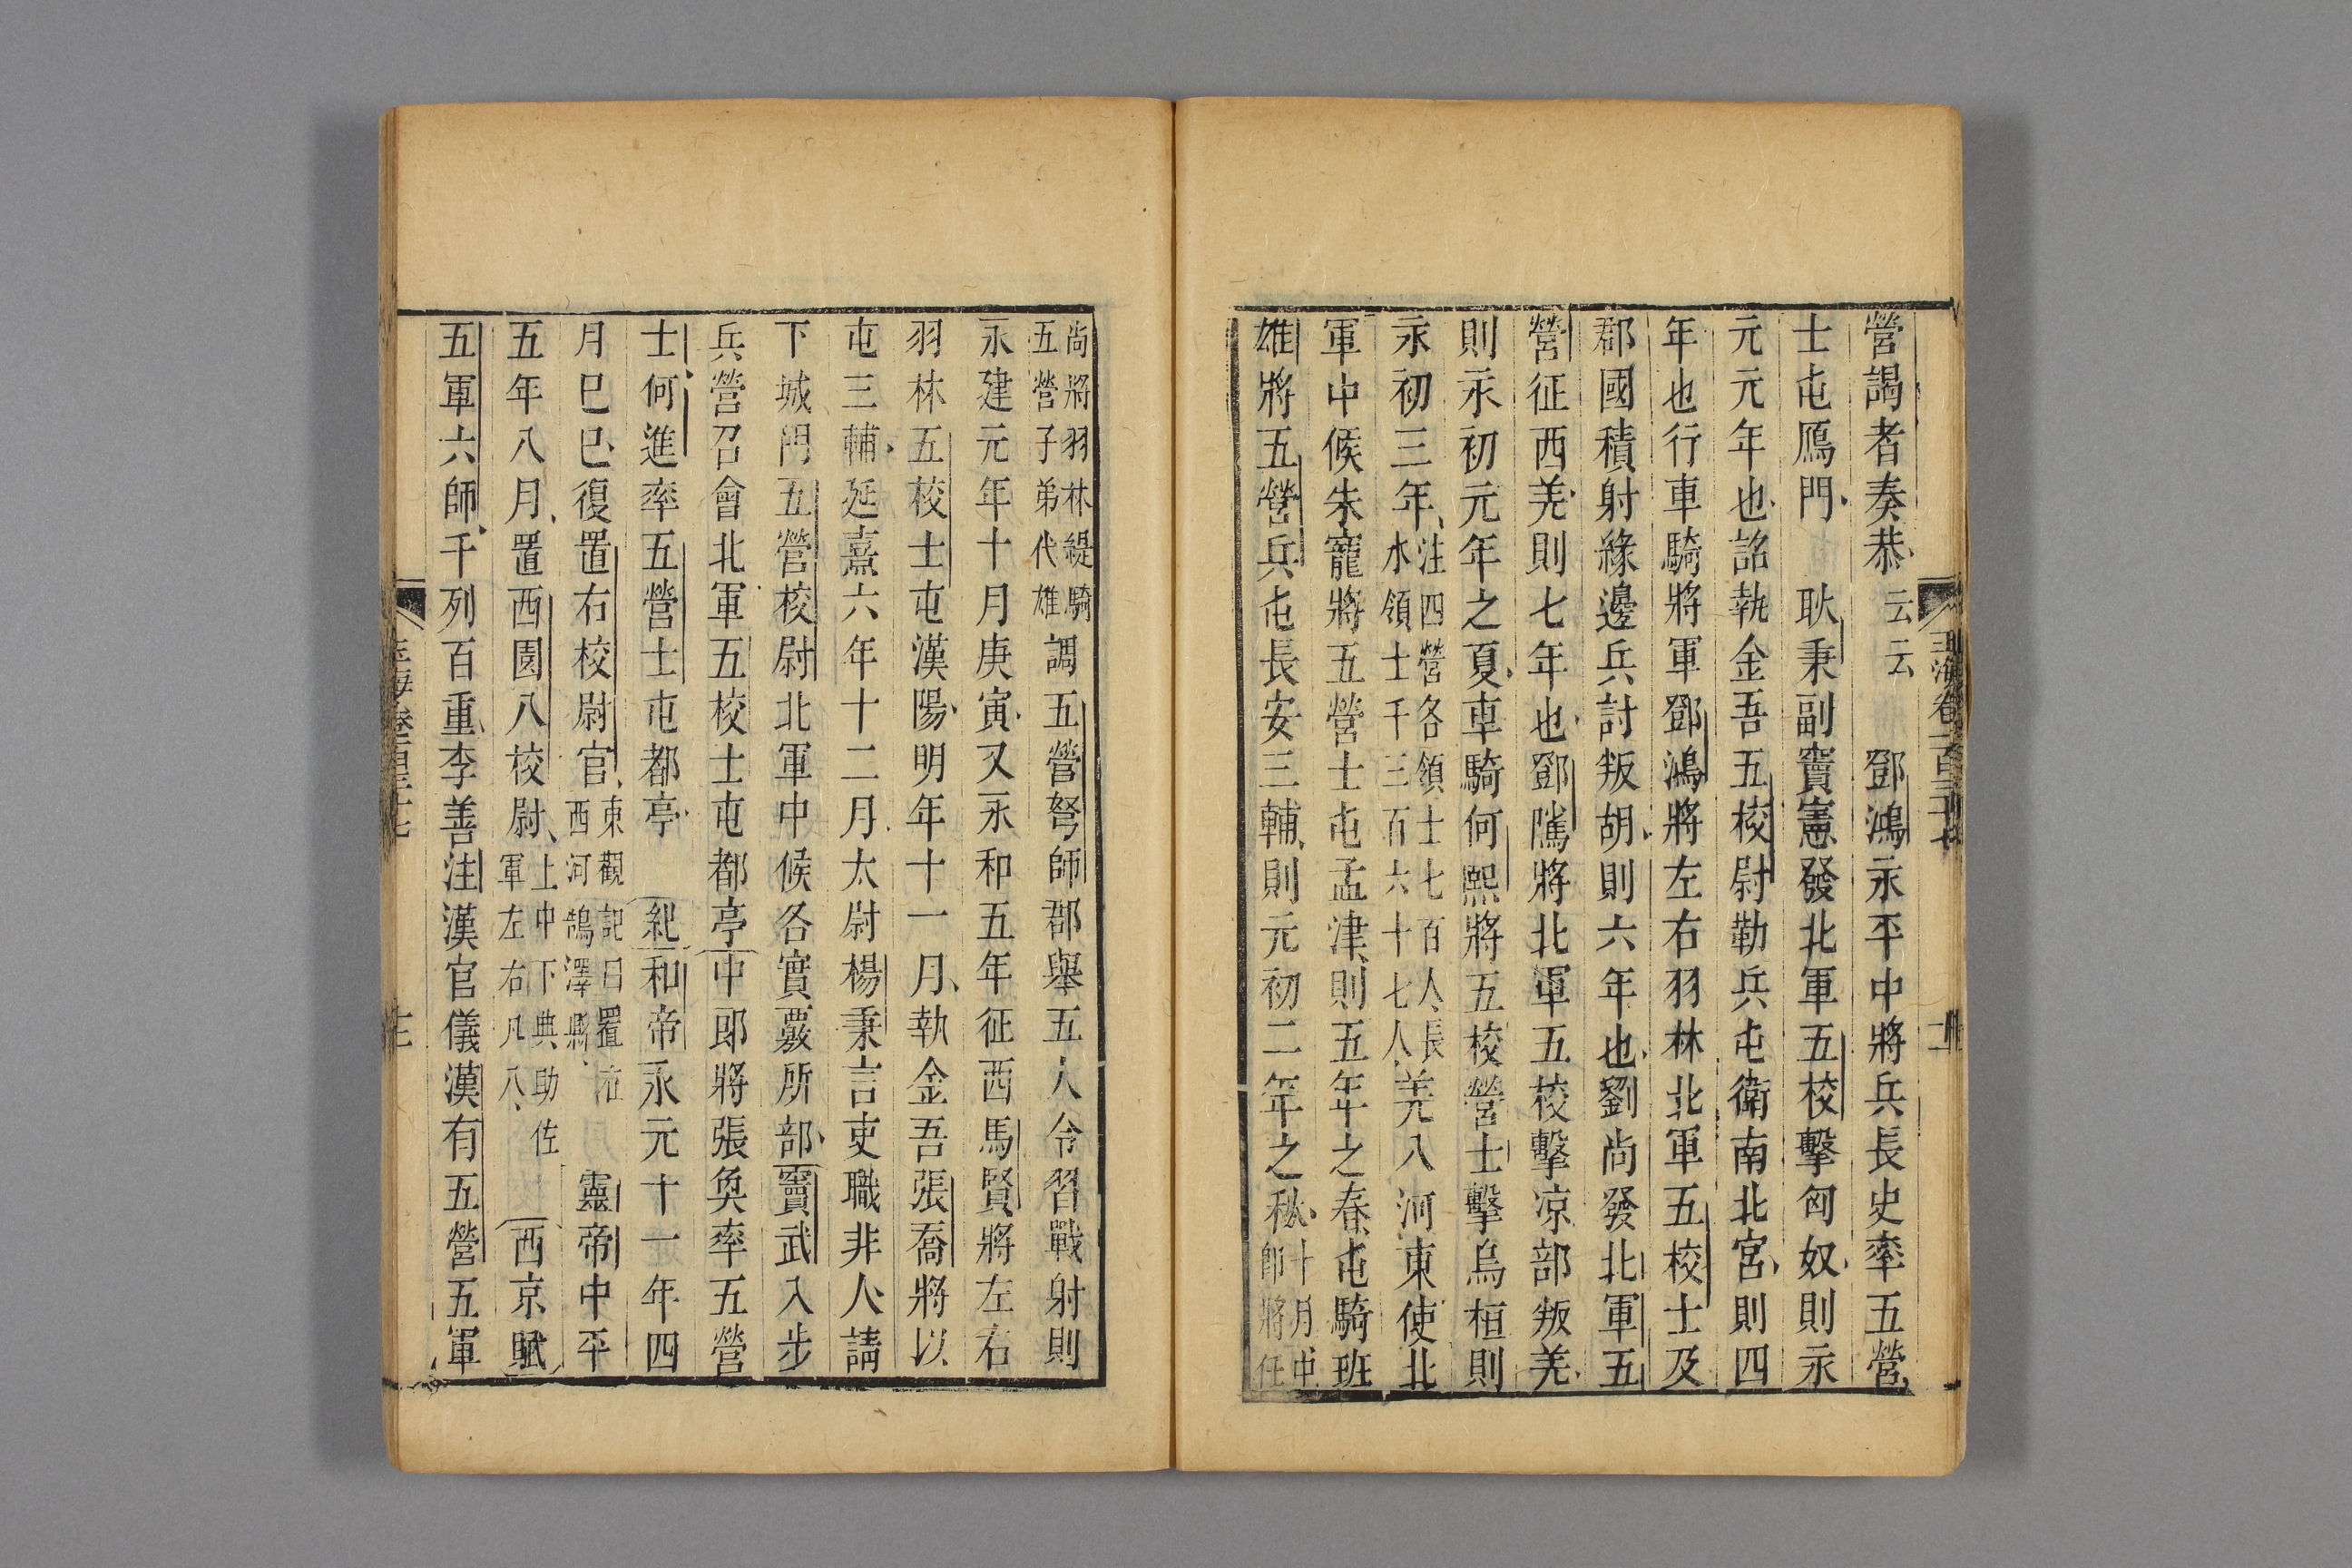 營謁者奏恭云云　鄧鴻永平中將兵長史率五營
士屯鴈門　耿秉副竇憲發北軍五校擊匈奴則永
元元年也詔執金吾五校尉勒兵屯衛南北宮則四
年也行車騎將軍鄧鴻將左右羽林北軍五校士及
郡國積射緣邊兵討叛胡則六年也劉尚發北軍五
營征西羌則七年也鄧隲將北軍五校擊凉部叛羌
則永初元年之夏車騎何熙將五校營士擊烏桓則
永初三年注四營各領士七百人長水領士千三百六十七人羌入河東使北
軍中候朱寵將五營士屯孟津則五年之春屯騎班
雄將五營兵屯長安三輔則元初二年之秋十月中郎將任
尚將羽林緹騎五營子弟代雄調五營弩師郡舉五人令習戰射則
永建元年十月庚寅又永和五年征西馬賢將左右
羽林五校士屯漢陽明年十一月執金吾張喬將以
屯三輔延熹六年十二月太尉楊秉言吏職非人請
下城門五營校尉北軍中候各實覈所部竇武入步
兵營召會北軍五校士屯都亭中郎將張奐率五營
士何進率五營士屯都亭　紀和帝永元十一年四
月巳巳復置右校尉官東觀記曰置在西河鵠澤縣　靈帝中平
五年八月置西園八校尉上中下典助佐軍左右凡八　西京賦
五軍六師千列百重李善注漢官儀漢有五營五軍
玉海卷一百三十七